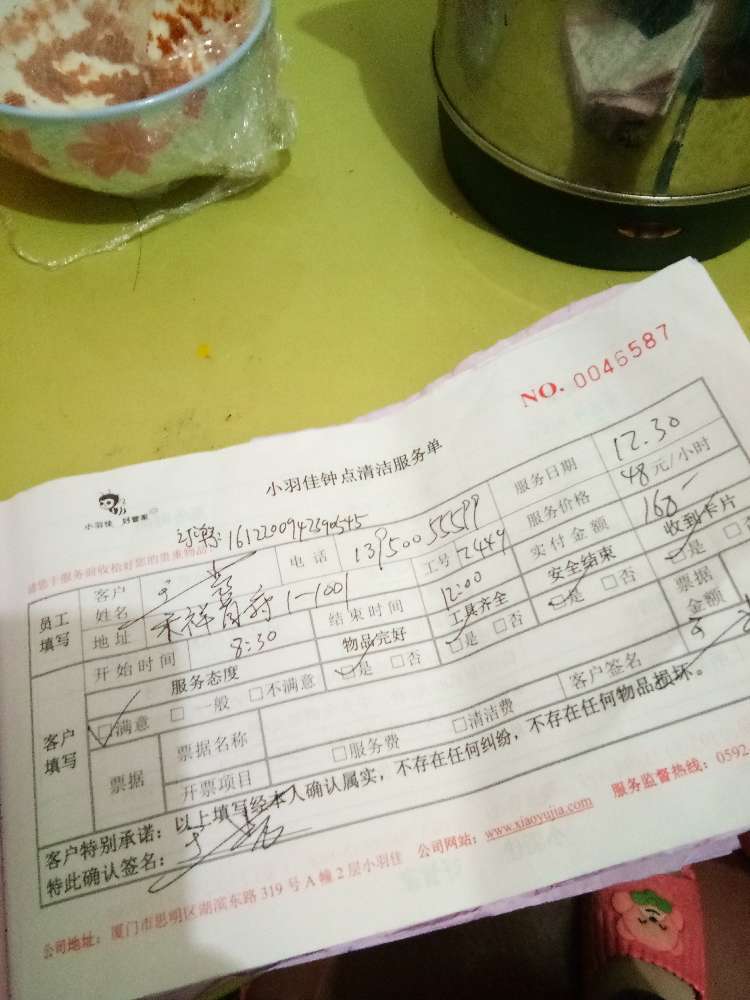 NO. 0046587
小羽佳钟点清洁服务单
小羽佳 好管家
请您于服务前收检好您的贵重物品
1612200942390545
员工填写
客户姓名 电话 13950055599 服务日期 12.30
地址 天祥 1-1001 工号 2449 服务价格 48元/小时
开始时间 8:30 结束时间 12:00 实付金额 168
客户填写
服务态度 物品完好 工具齐全 安全结束 收到卡片
☑满意 □一般 □不满意 ☑是 □否 ☑是 □否 ☑是 □否 ☑是
票据 票据名称 票据金额
开票项目 □服务费 □清洁费 客户签名
客户特别承诺：以上填写经本人确认属实，不存在任何纠纷，不存在任何物品损坏。
特此确认签名：
公司地址：厦门市思明区湖滨东路319号A幢2层小羽佳 公司网站：www.xiaoyujia.com 服务监督热线：0592